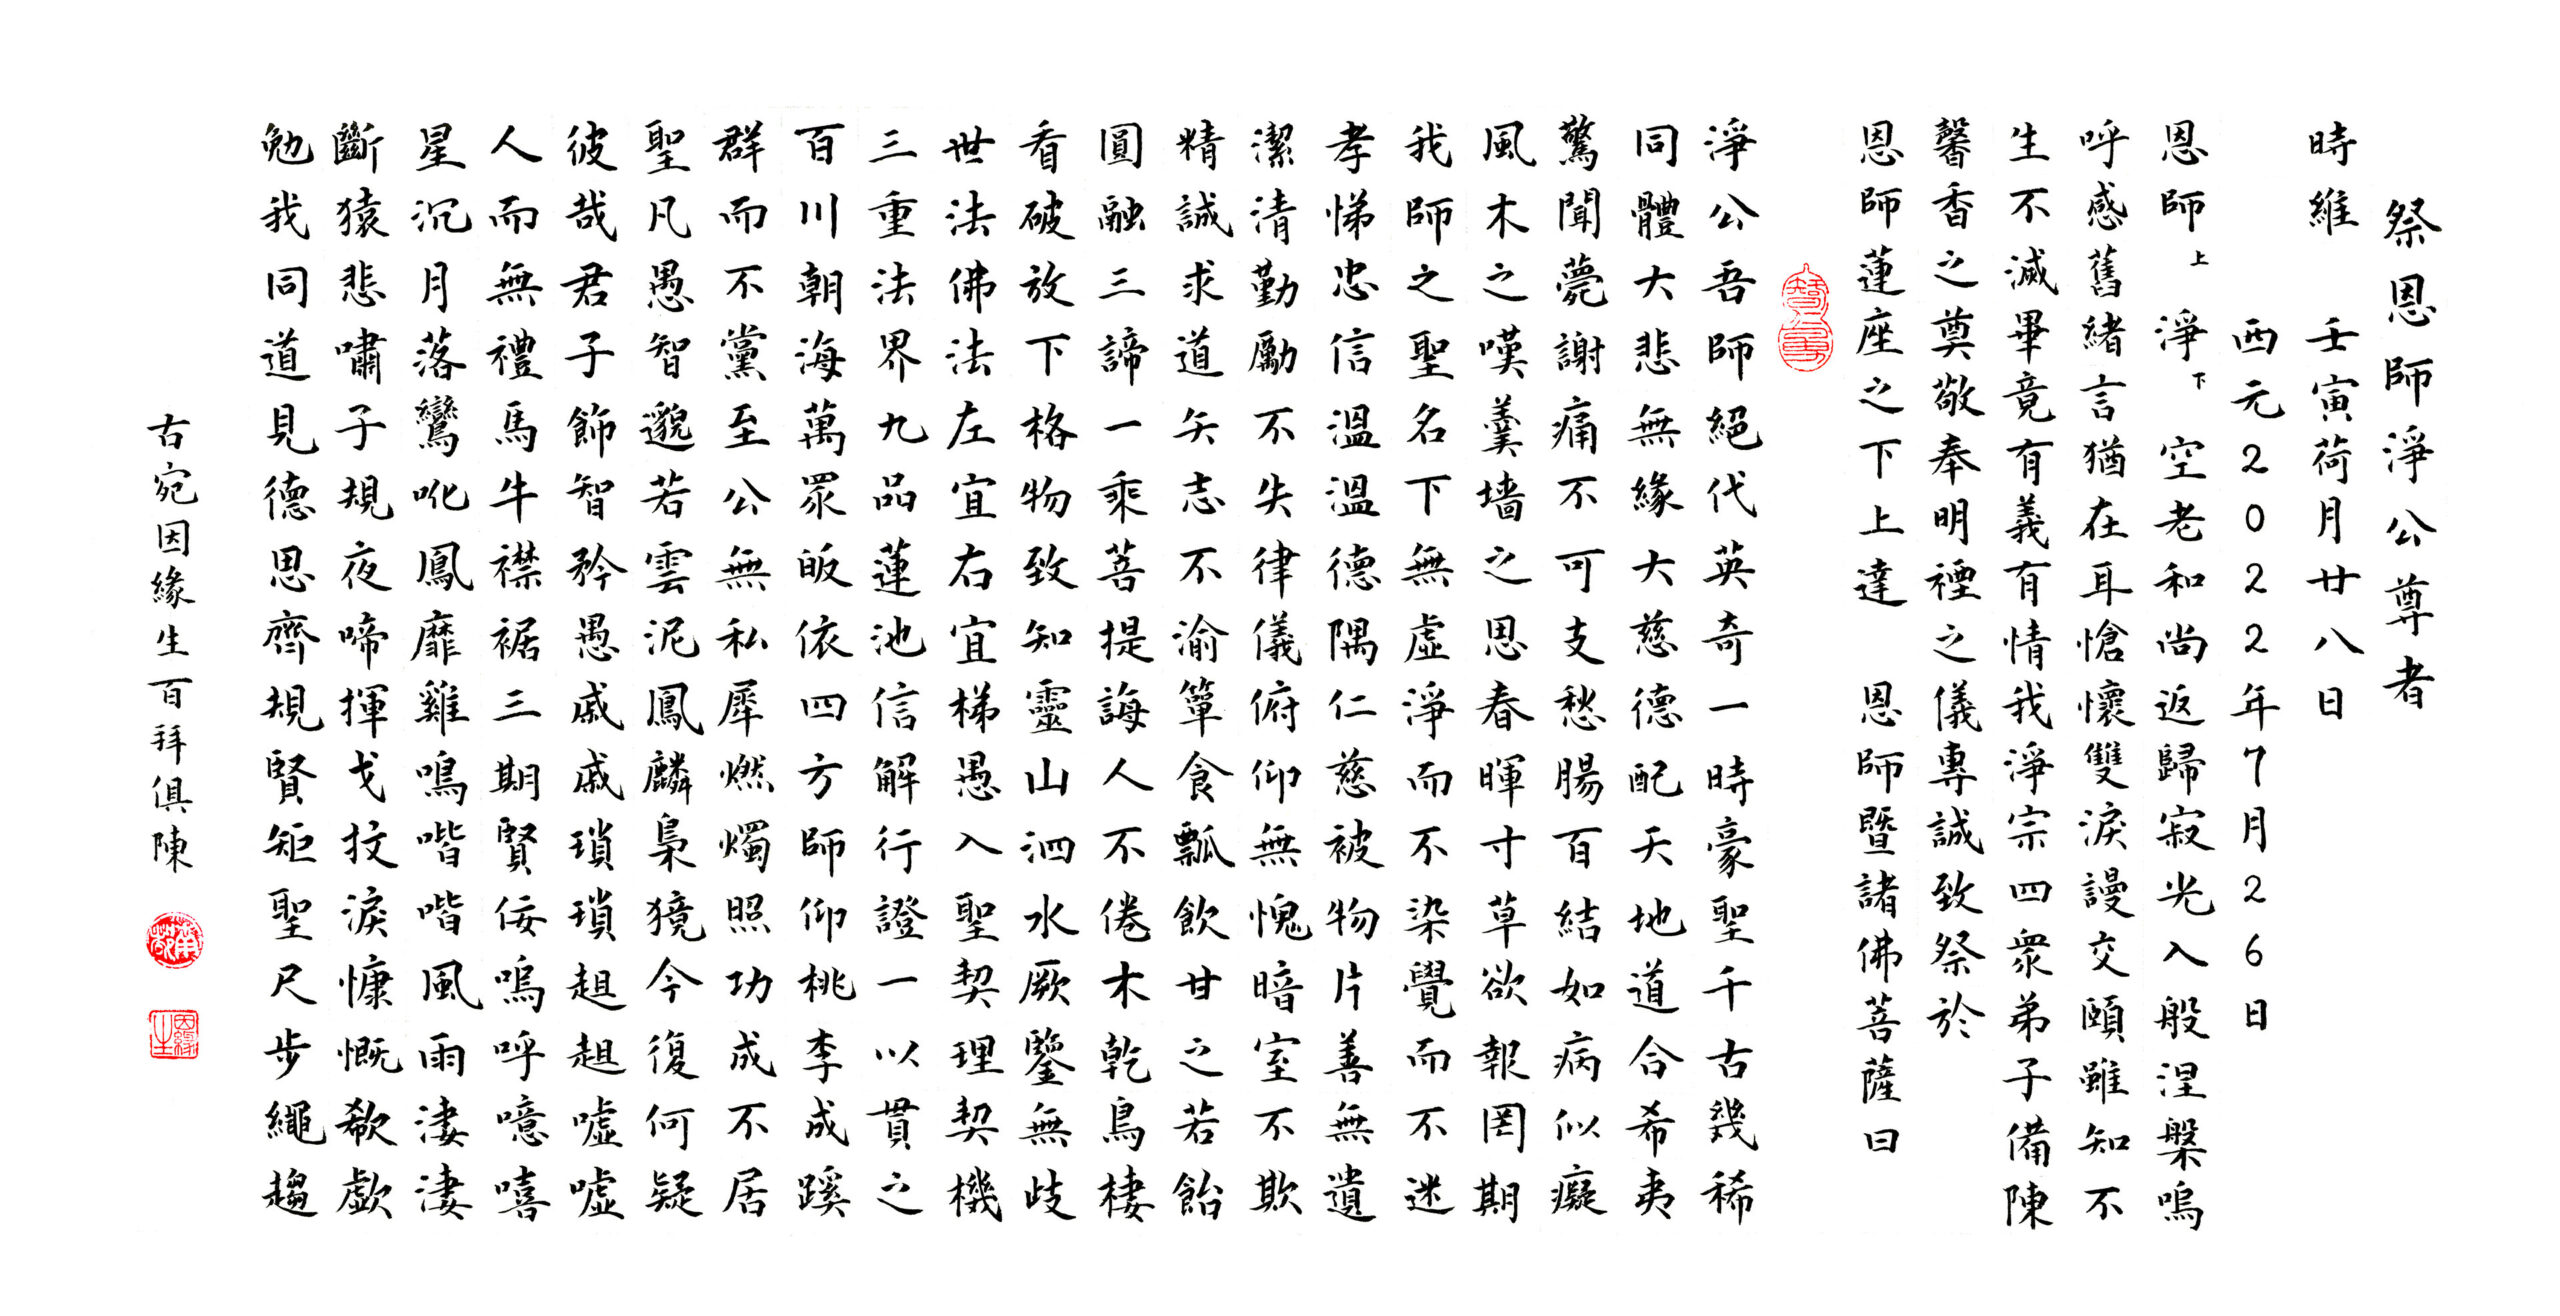 祭恩師淨公尊者
時維 壬寅荷月廿八日
西元2022年7月26日
恩師上淨下空老和尚返歸寂光入般涅槃嗚
呼感舊緒言猶在耳愴懷雙淚謾交頤雖知不
生不滅畢竟有義有情我淨宗四眾弟子備陳
馨香之奠敬奉明禋之儀專誠致祭於
恩師蓮座之下上達 恩師暨諸佛菩薩曰
淨公吾師絕代英奇一時豪聖千古幾稀
同體大悲無緣大慈德配天地道合希夷
驚聞薨謝痛不可支愁腸百結如病似癡
風木之嘆羹墻之思春暉寸草欲報罔期
我師之聖名下無虛淨而不染覺而不迷
孝悌忠信溫溫德隅仁慈被物片善無遺
潔清勤勵不失律儀俯仰無愧暗室不欺
精誠求道矢志不渝簞食瓢飲甘之若飴
圓融三諦一乘菩提誨人不倦木乾鳥棲
看破放下格物致知靈山泗水厥鑒無歧
世法佛法左宜右宜梯愚入聖契理契機
三重法界九品蓮池信解行證一以貫之
百川朝海萬眾皈依四方師仰桃李成蹊
群而不黨至公無私犀燃燭照功成不居
聖凡愚智邈若雲泥鳳麟梟獍今復何疑
彼哉君子飾智矜愚戚戚瑣瑣趄趄噓噓
人而無禮馬牛襟裾三期賢佞嗚呼噫嘻
星沉月落鸞吪鳳靡雞鳴喈喈風雨淒淒
斷猿悲嘯子規夜啼揮戈抆淚慷慨欷歔
勉我同道見德思齊規賢矩聖尺步繩趨
古宛因緣生百拜俱陳
因緣生